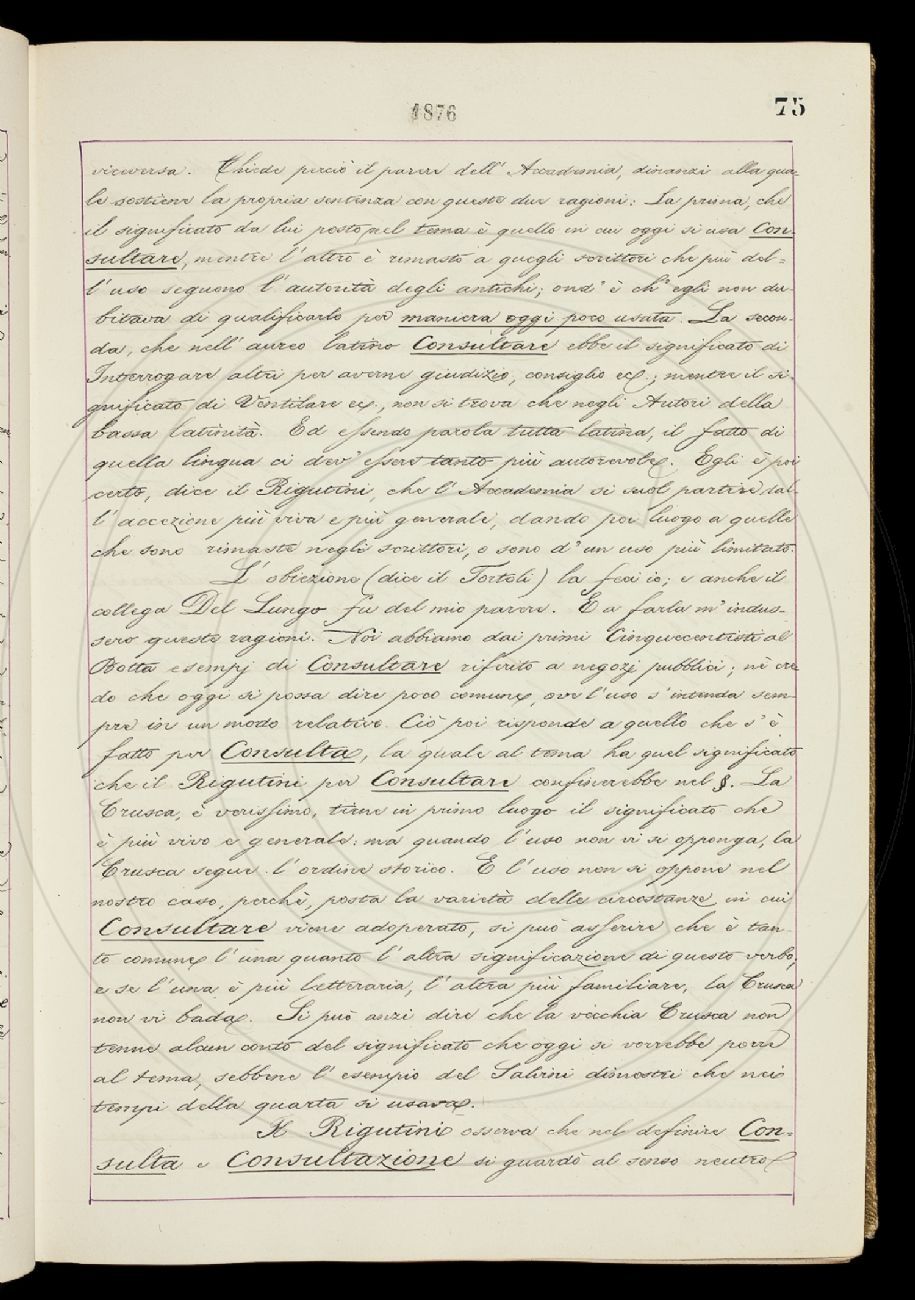 1876
75
viceversa. Chiede perciò il parere dell' Accademia, dinanzi alla qua-
le sostiene la propria sentenza con queste due ragioni: La prima, che
il significato da lui posto nel tema è quello in cui oggi si usa Con-
sultare, mentre l'altro è rimasto a quegli scrittori che più del-
l'uso seguono l'autorità degli antichi; ond'è ch'egli non du-
bitava di qualificarlo per maniera oggi poco usata. La secon-
da, che nell'aureo latino Consultare ebbe il significato di
Interrogare altri per averne giudizio, consiglio ec.; mentre il si-
gnificato di Ventilare ec., non si trova che negli Autori della
bassa latinità. Ed essendo parola tutta latina, il fatto di
quella lingua ci dev'essere tanto più autorevole. Egli è poi
certo, dice il Rigutini, che l'Accademia si suol partire dal-
l'accezione più viva e più generale, dando poi luogo a quelle
che sono rimaste negli scrittori, o sono d'un uso più limitato.
L'obiezione (dice il Tortoli) la feci io; e anche il
collega Del Lungo fu del mio parere. E a farla m'indus-
sero queste ragioni. Noi abbiamo dai primi Cinquecentisti al
Botta esempj di Consultare riferito a negozj pubblici; nè cre-
do che oggi si possa dire poco comune, ove l'uso s'intenda sem-
pre in un modo relativo. Ciò poi risponde a quello che s'è
fatto per Consulta, la quale al tema ha quel significato
che il Rigutini per Consultare confinerebbe nel §. La
Crusca, è verissimo, tiene in primo luogo il significato che
è più vivo e generale: ma quando l'uso non vi si opponga, la
Crusca segue l'ordine storico. E l'uso non si oppone nel
nostro caso, perchè, posta la varietà delle circostanze in cui
Consultare viene adoperato, si può asserire che è tan-
to comune l'una quanto l'altra significazione di questo verbo;
e se l'una è più letteraria, l'altra più familiare, la Crusca
non vi bada. Si può anzi dire che la vecchia Crusca non
tenne alcun conto del significato che oggi si vorrebbe porre
al tema, sebbene l'esempio del Salvini dimostri che nei
tempi della quarta si usava.
Il Rigutini osserva che nel definire Con-
sulta e Consultazione si guardò al senso neutro